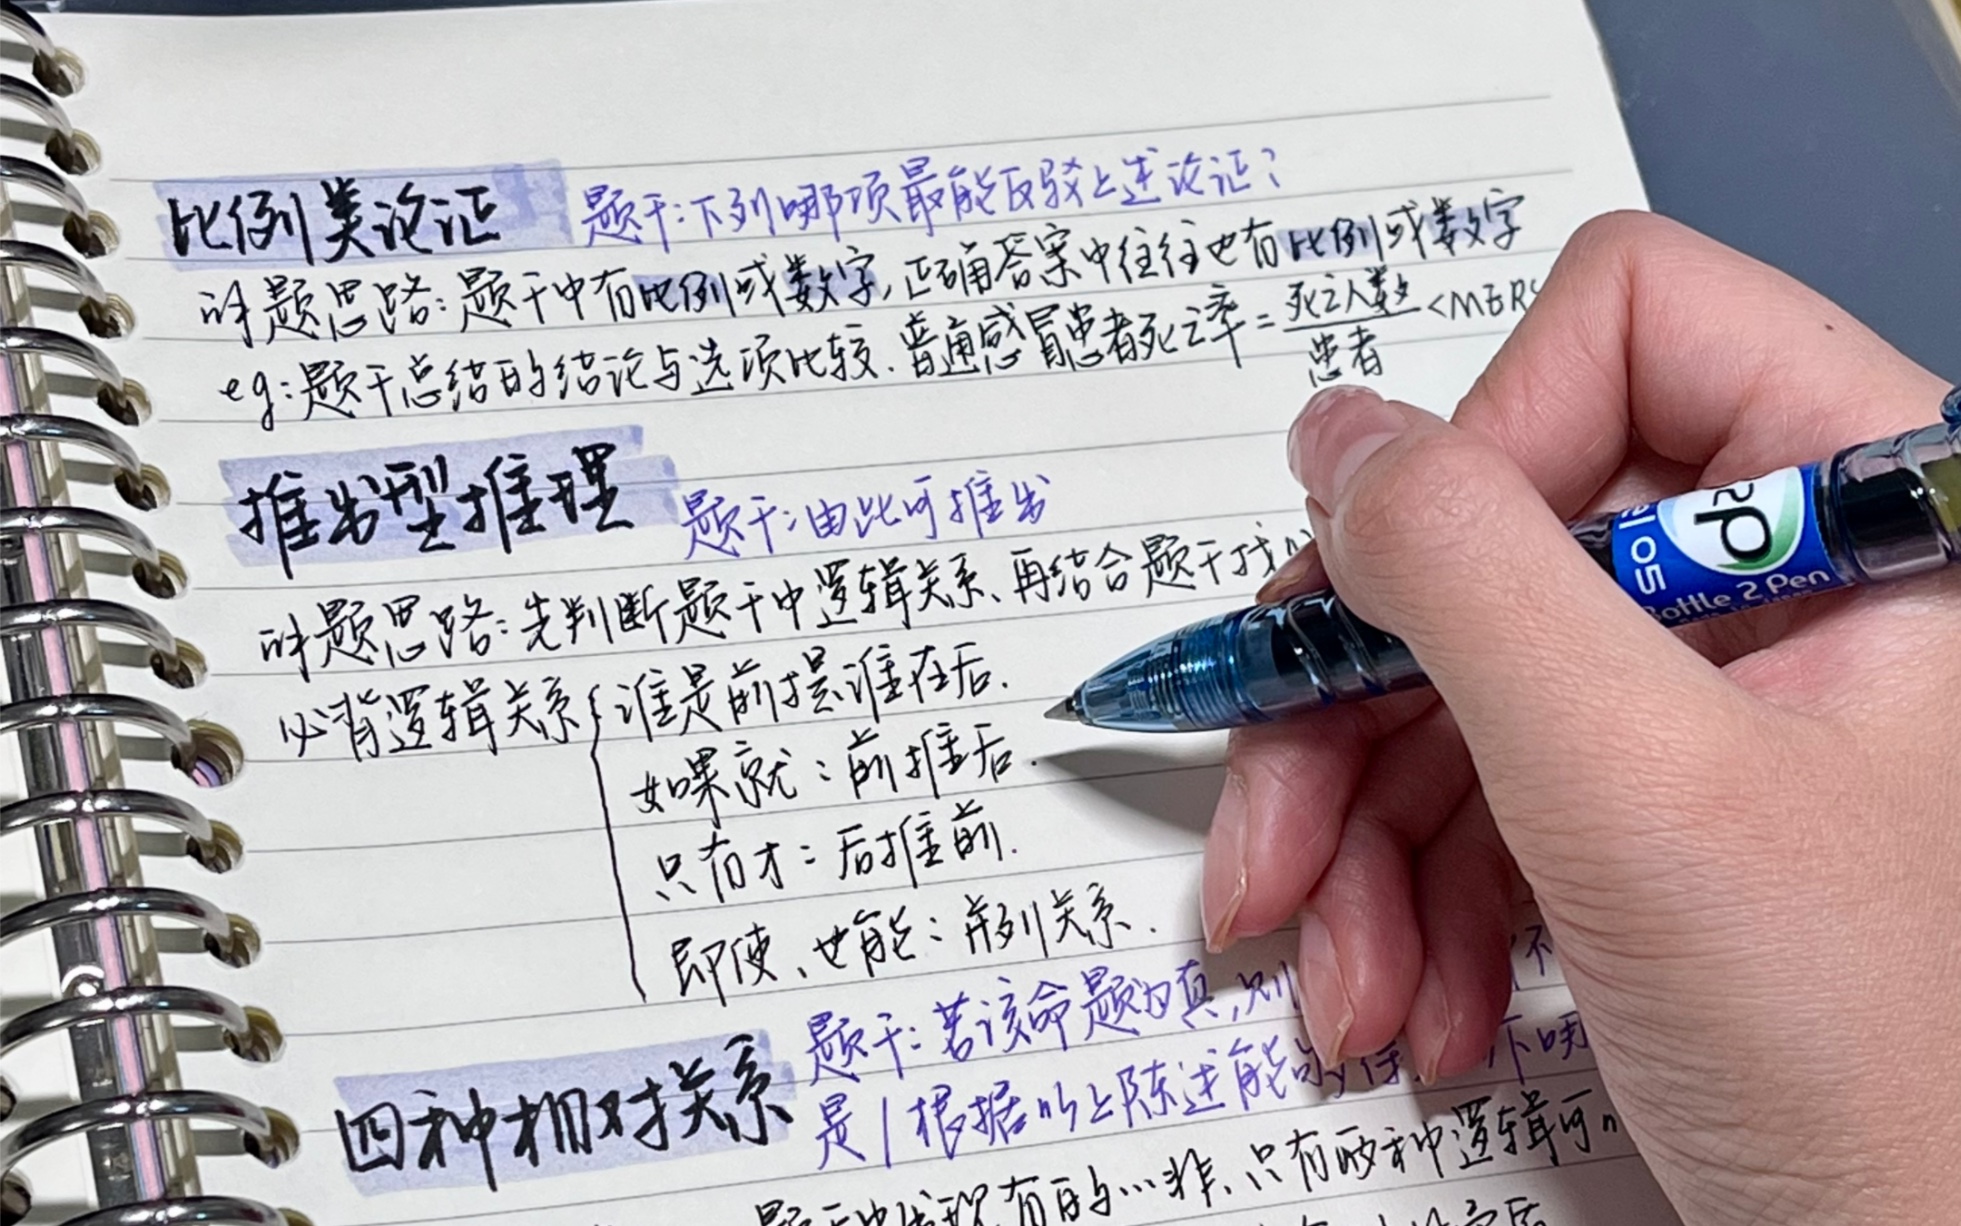 比例类论证 题干:下列哪项最能反驳上述论证?
解题思路:题干中有比例或数字,正确答案中往往也有比例或数字
eg:题干总结的结论与选项比较.普通感冒患者死亡率=死亡人数/患者<MERS
推出型推理 题干:由此可推出
解题思路:先判断题干中逻辑关系、再结合题干找
必背逻辑关系{谁是前提谁在后.
如果就:前推后.
只有才:后推前.
即使、也能:并列关系.
四种相对关系 题干:若该命题为真,则 不
是/根据以上陈述能 下
题干中 有的…非、只有两种逻辑可
B2P
Gel 05
Bottle 2 Pen